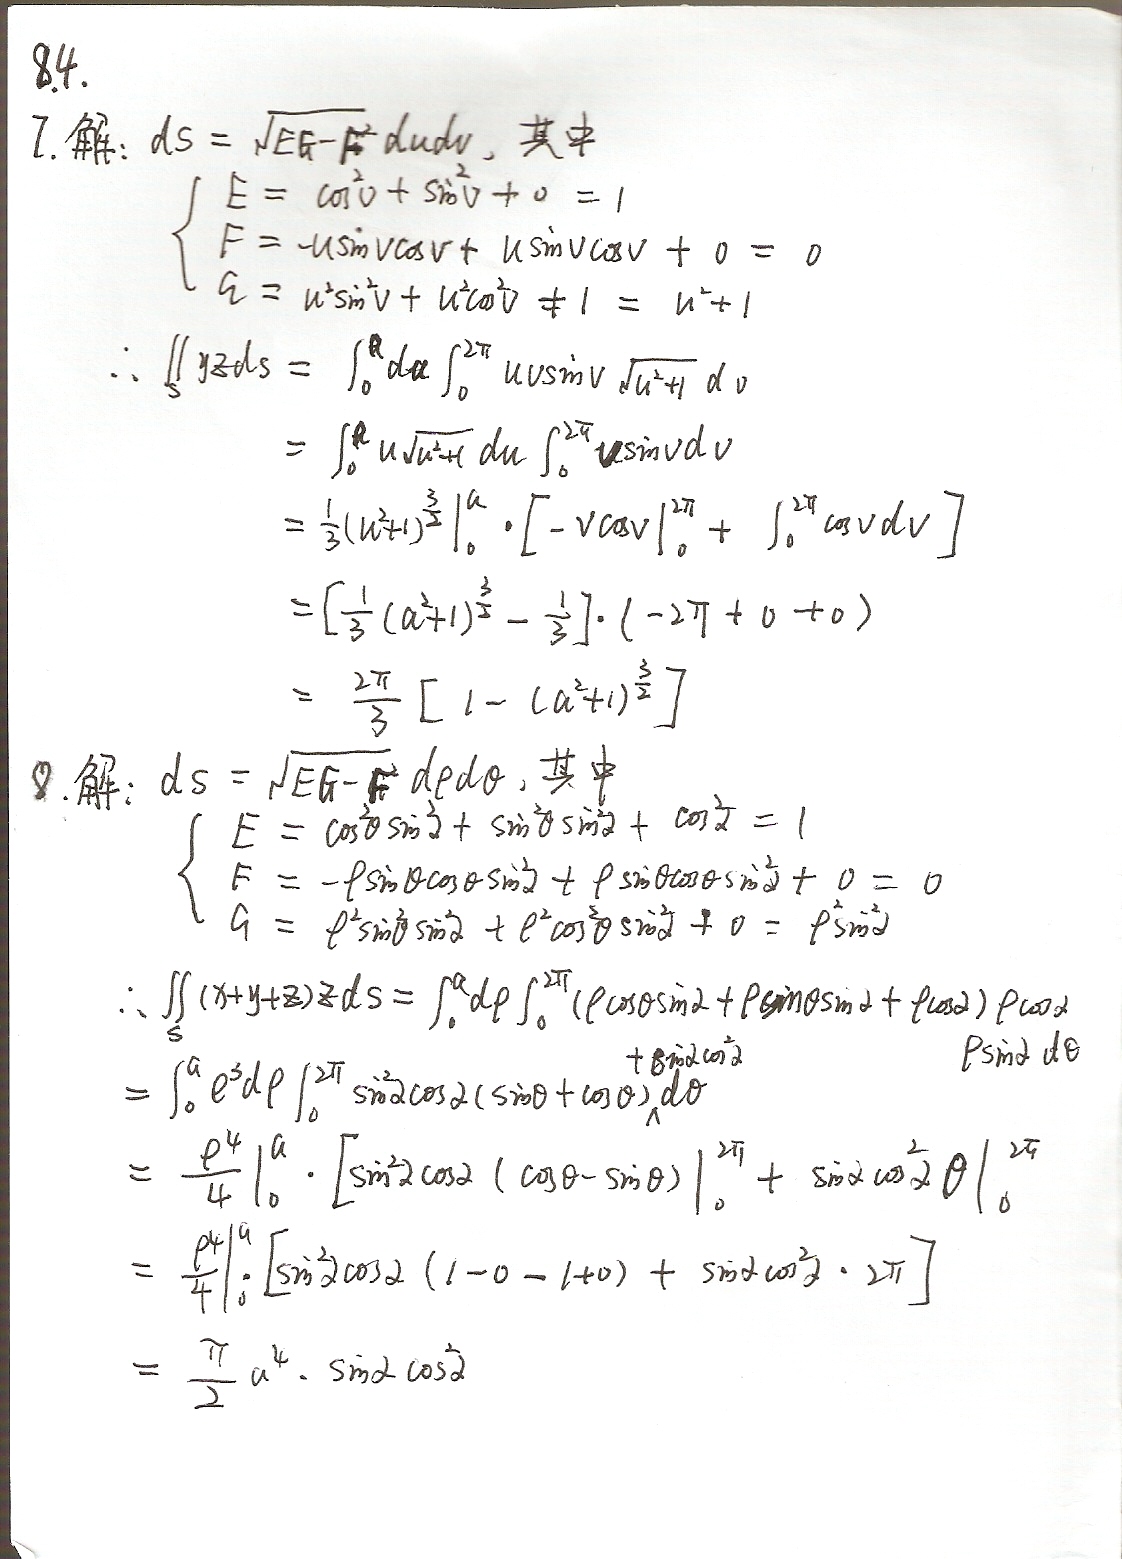 8.4.
7. 解: ds = √(EG-F²) dudv, 其中
E = cos²v + sin²v + 0 = 1
F = -usinvcosv + usinvcosv + 0 = 0
G = u²sin²v + u²cos²v + 1 = u²+1
∴ ∬_S yzds = ∫₀^a du ∫₀^{2π} uvsinv √(u²+1) dv
= ∫₀^a u√(u²+1) du ∫₀^{2π} vsinvdv
= 1/3 (u²+1)^{3/2} |₀^a · [-vcosv|₀^{2π} + ∫₀^{2π} cosvdv]
= [1/3 (a²+1)^{3/2} - 1/3] · (-2π + 0 + 0)
= 2π/3 [1 - (a²+1)^{3/2}]
8. 解: ds = √(EG-F²) dρdθ, 其中
E = cos²θsin²α + sin²θsin²α + cos²α = 1
F = -ρsinθcosθsin²α + ρsinθcosθsin²α + 0 = 0
G = ρ²sin²θsin²α + ρ²cos²θsin²α + 0 = ρ²sin²α
∴ ∬_S (x+y+z)zds = ∫₀^a dρ ∫₀^{2π} (ρcosθsinα + ρsinθsinα + ρcosα) ρcosα
ρsinα dθ
+ sinαcos²α
= ∫₀^a ρ³dρ ∫₀^{2π} sin²αcosα(sinθ + cosθ)‸dθ
= ρ⁴/4 |₀^a · [sin²αcosα (cosθ - sinθ)|₀^{2π} + sinαcos²αθ|₀^{2π}
= ρ⁴/4 |₀^a · [sin²αcosα (1-0-1+0) + sinαcos²α · 2π]
= π/2 a⁴ · sinαcos²α